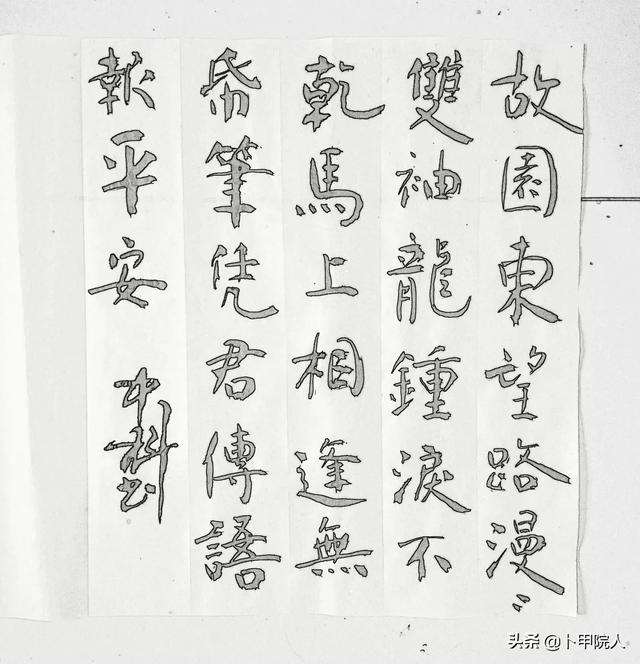 故園東望路漫〻
雙袖龍鍾淚不
乾馬上相逢無
帋筆凭君傳語
報平安 中科
头条 @卜甲院人